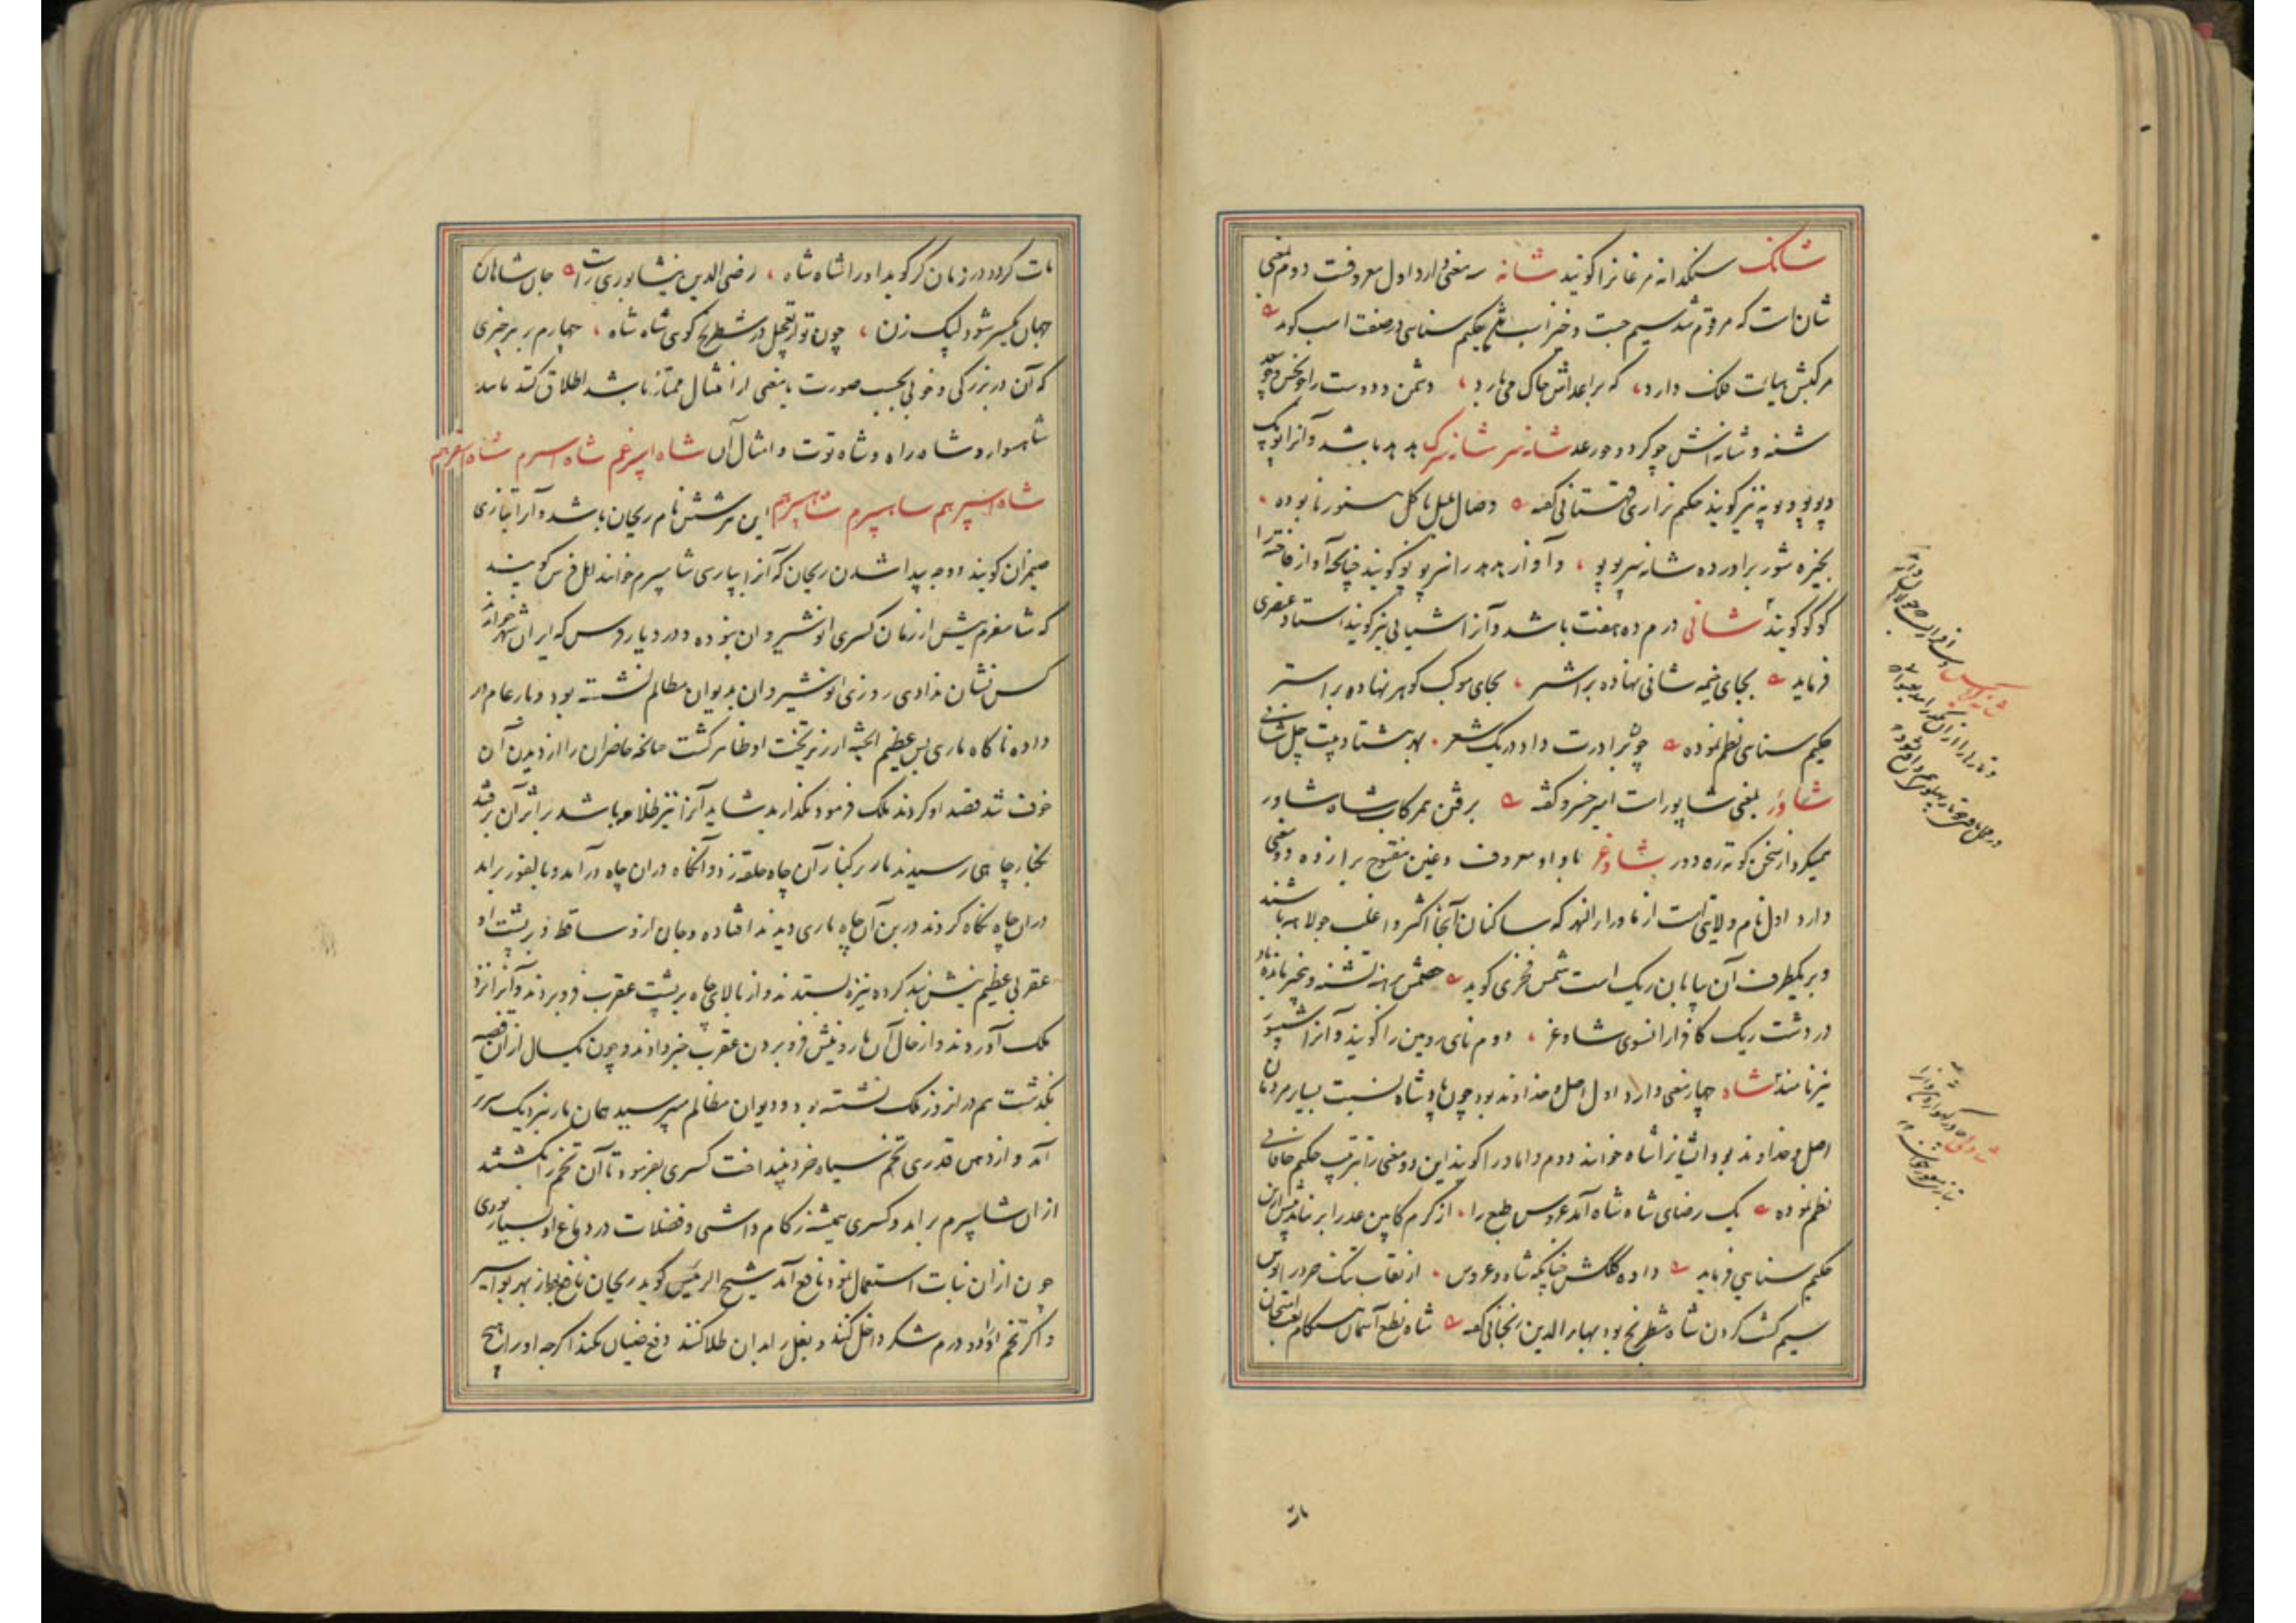 شانک سنگدانه مرغانرا گویند شانه سه معنی دارد اول معروفست دوم بمعنی
شان است که مرقوم شد سیم جست و خیز اسب حکیم سنایی در صفت اسب گوید
مرکبش هیات فلک دارد، که بر اعداش خاک می بارد، دشمن و دوست را چو نحس و چو سعد
شنه و شانه اش چو گردد و رعد شانه سر شانه سرک هدهد باشد و آنرا پوپک
و پوپو و پوپه نیز گویند حکیم نزاری قهستانی گفته وصال بلبل با گل هنوز نابوده
بخیره شور برآورده شانه سر پوپو، و آواز هدهد را نیز پوپو گویند چنانچه آواز فاخته را
کوکو گویند شانی درم ده هفت باشد و آنرا شیانی نیز گویند استاد عنصری
فرماید بجای خیمه شانی نهاده بر اشتر، بجای موکب گوهر نهاده بر استر
حکیم سنایی نظم نموده جوثر ادرت داد در یک شعر بهر هشتاد بیت چل شانی
شاور بمعنی شاپور است امیر خسرو گفته برفتن همرکاب شاه شاور
میکرد از سخن کوته ره دور شاوغر با واو معروف و غین مفتوح برا زده دو معنی
دارد اول نام ولایتی است از ماوراءالنهر که ساکنان آنجا اکثر و اغلب جولاهه باشند
و بر یکطرف آن بیابان ریک است شمس فخری گوید خصمش برهنه تشنه و متحیر بمانده باد
در دشت ریک کافر از انسوی شاوغر، دوم نای رومین را گویند و آنرا شیپور
نیز نامند شاه چهار معنی دارد اول اصل و خداوند بود چون پادشاه نسبت بسایر مردمان
اصل و خداوند بود ایشانرا شاه خوانند دوم داماد را گویند این دو معنی را بترتیب حکیم خاقانی
نظم نموده یک رضای شاه شاه آمد عروس طبع را از کرم کابین عذرا برنتابد بیش ازین
حکیم سنایی فرماید داده گلشن چنانکه شاه و عروس از نقاب تنک
سیم کشت کردن شاه شطرنج بود بهاءالدین زنجانی گفته شاه نطع آسمان هنگام لعب امتحان
مات
مات گردد در زمان گر گوید او را شاه شاه، رضی الدین نیشابوری راست جان شاهان
جهان یکسر شود لیک زن، چون تو از تعجیل در شطرنج گوئی شاه شاه، چهارم بر هر چیزی
که آن در بزرگی و خوبی بحسب صورت یا معنی از امثال ممتاز باشد اطلاق کنند مانند
شاهسوار و شاه راه و شاه توت و امثال آن شاه اسپرغم شاه اسپرم شاه اسفرهم
شاه اسپرهم شاهسپرم شاهسپرهم این هر شش نام ریحان باشد و آنرا بتازی
ضیمران گویند و وجه پیدا شدن ریحان که آنرا بپارسی شاهسپرم خوانند اهل فرس گویند
که شاهسفرم پیش از زمان کسری انوشیروان نبوده و در دیار فرس که ایران شهر خوانند
کس نشان ندادی روزی انوشیروان بدیوان مظالم نشسته بود و بار عام در
داده ناگاه ماری بس عظیم الجثه از زیر تخت او ظاهر گشت چنانچه حاضران را از دیدن آن
خوف شد قصد او کردند ملک فرمود بگذارید شاید آنرا نیز ظلامه باشد بر اثر آن رفتند
بکنار چاهی رسیدند مار بر کنار آن چاه حلقه زد و آنگاه دران چاه درآمد و بالفور برآمد
دران چاه نگاه کردند در بن آن چاه ماری دیدند افتاده و جان ازو ساقط و بر پشت او
عقربی عظیم نیش بند کرده نیزه بستدند و از بالای چاه بر پشت عقرب فرو بردند و آنرا نزد
ملک آوردند و از حال آن مار و نیش فرو بردن عقرب خبر دادند و چون یکسال از آن قصه
بگذشت هم در انروز ملک نشسته بود و دیوان مظالم میپرسید همان مار بنزدیک سریر
آمد و از دهن قدری تخم سیاه خرد بینداخت کسری بفرمود تا آن تخم را بکشتند
ازان شاهسپرم برآمد و کسری همیشه زکام داشتی و فضلات در دماغ او بسیار بودی
چون ازان نبات استعمال نمود نافع آمد شیخ الرئیس گوید ریحان نافع بود از بهر بواسیر
و اگر تخم او دو درم شکر داخل کنند و بغل را بدان طلا کنند دفع ضنان بکند اگر چه او را هیچ